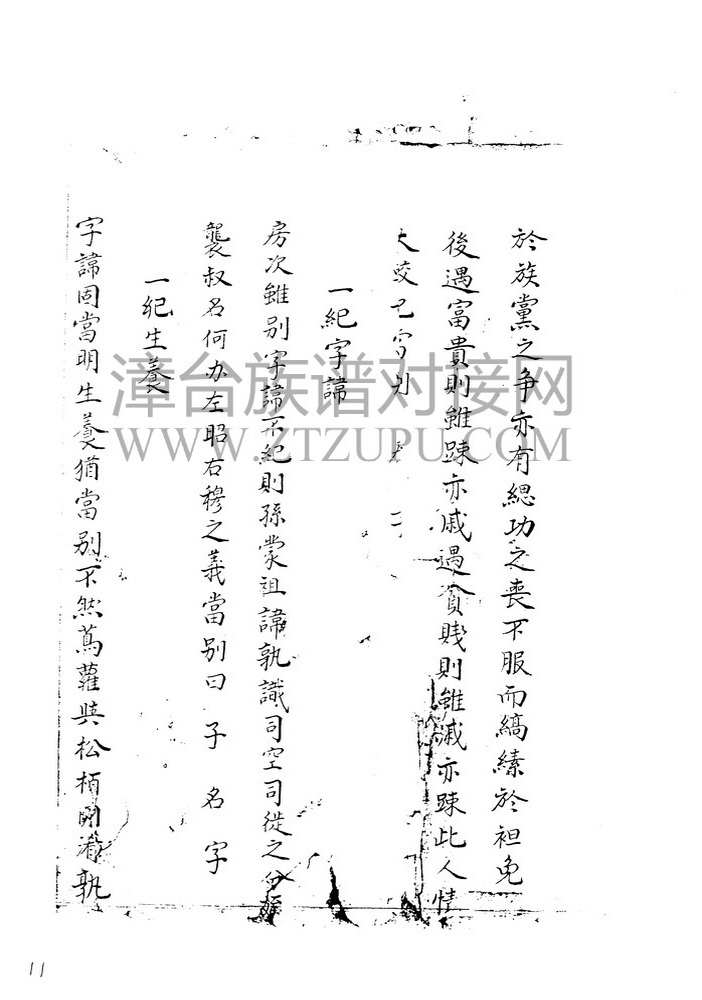 於族黨之争亦有緦功之喪不服而縞縤於袒免
後遇富貴則雖踈亦戚遇貧賤則雖戚亦踈此人情
大
一紀字諱
房次雖别字諱不紀則孫蒙祖諱孰識司空司徒之分姪
襲叔名何办左昭右穆之義當别曰子名字
一紀生養
字諱固當明生養猶當别不然蔦蘿與松栢同淆孰
漳台族谱对接网
WWW.ZTZUPU.COM
11